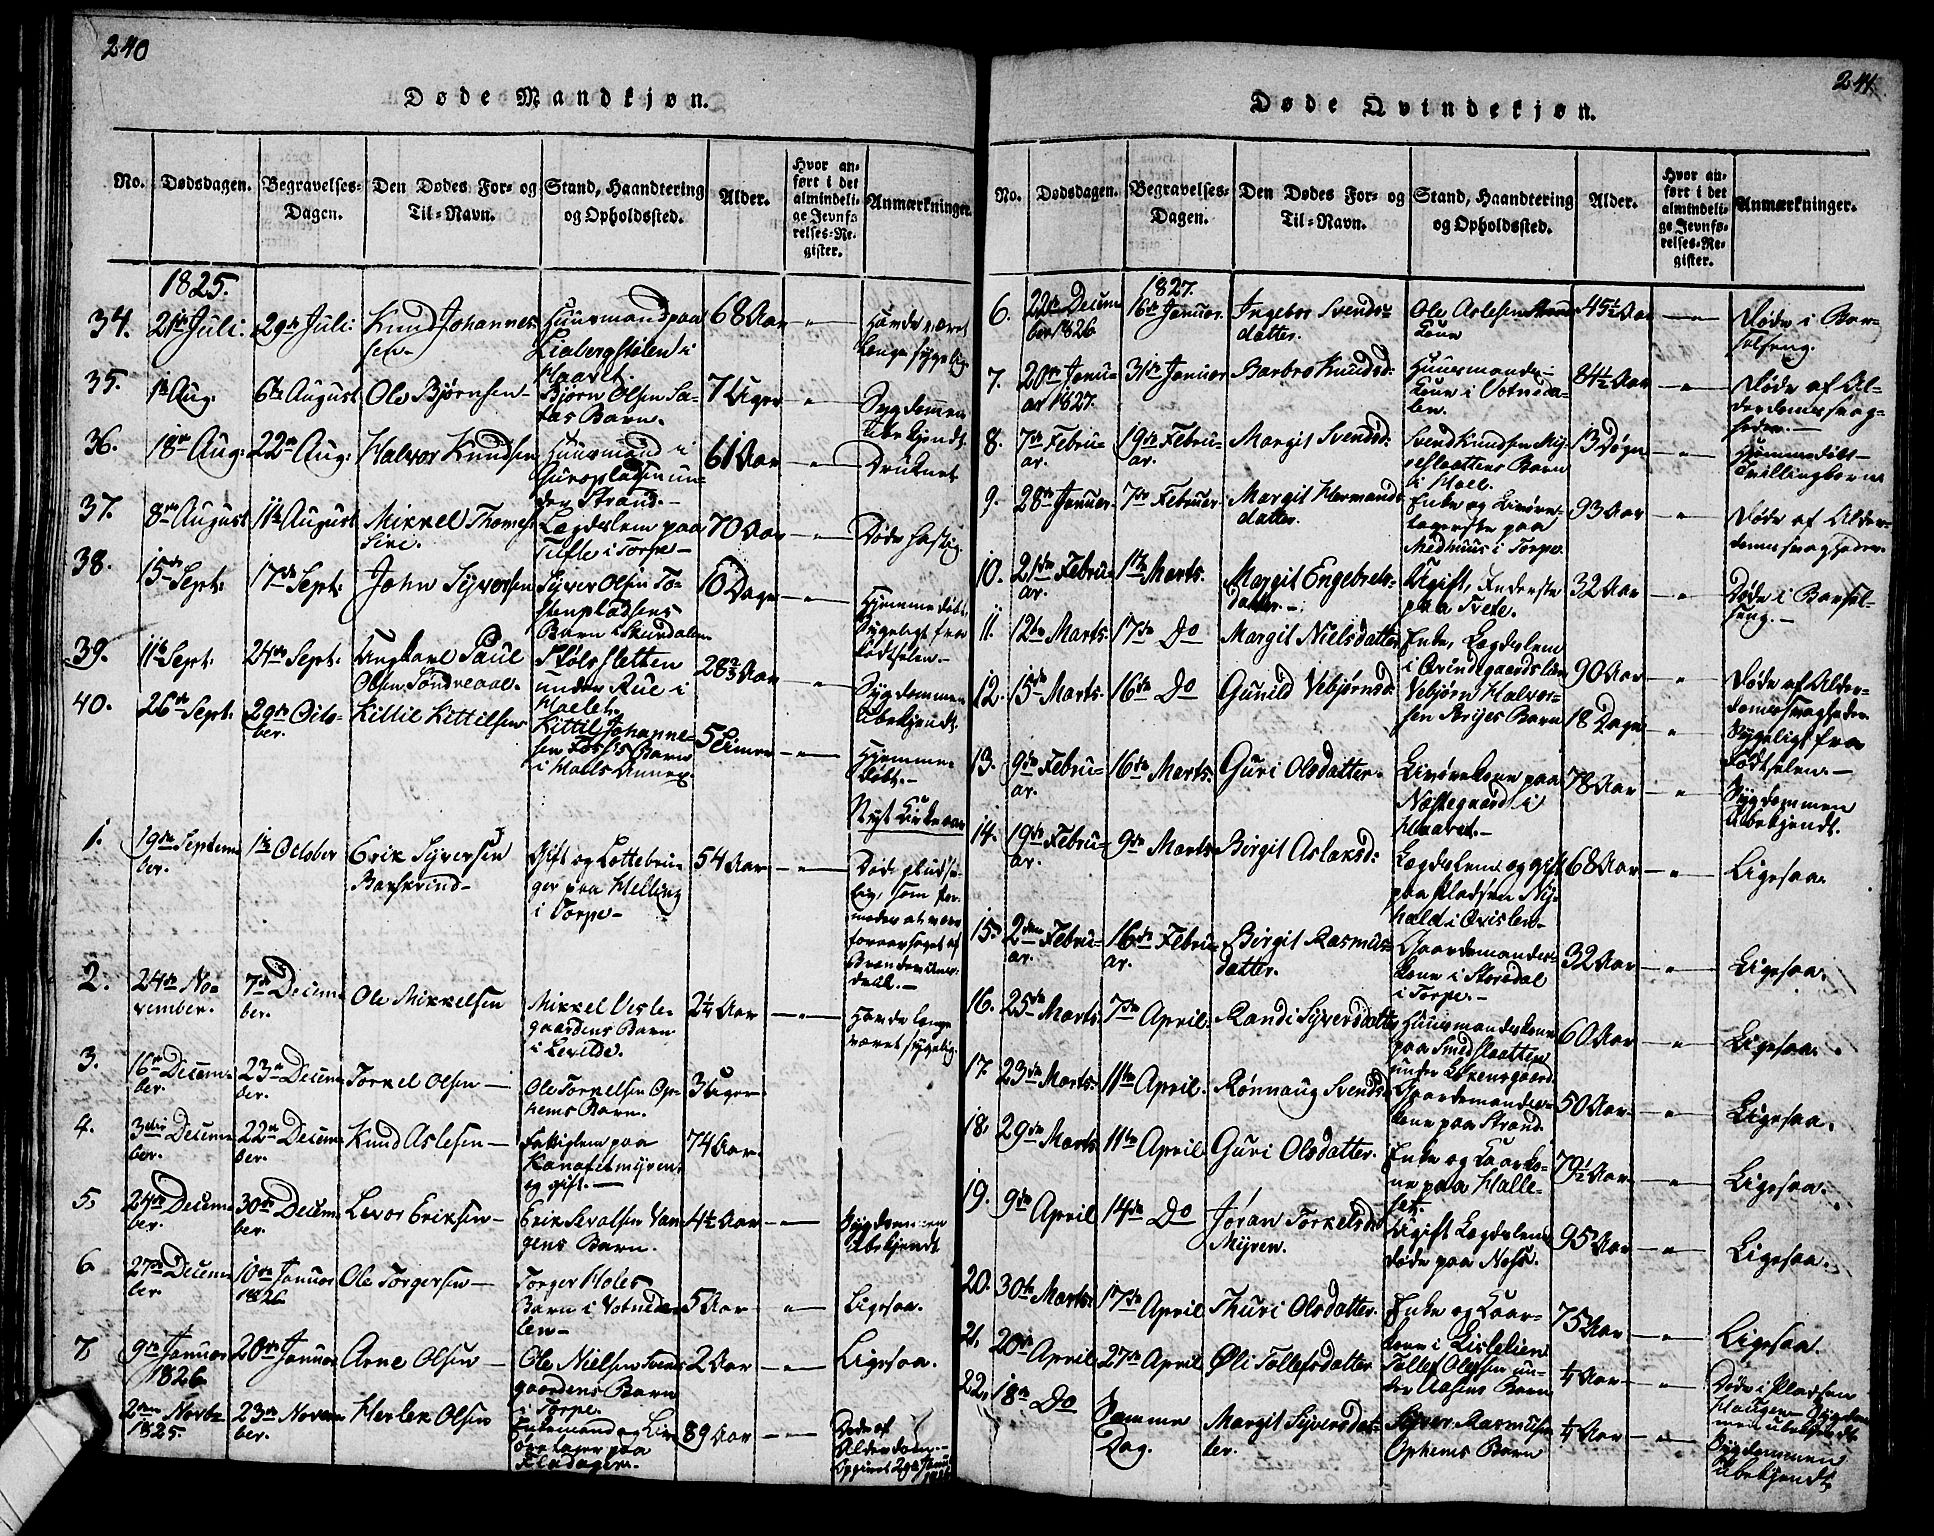 240
Døde Mandkjøn.
No. Dødsdagen. Begravelses-Dagen. Den Dødes For- og Til-Navn. Stand, Haandtering og Opholdssted. Alder. Hvor anført i det almindelige Jevnførelses-Register. Anmærkninger.
1825.
34. 21de Juli. 29de Juli. Knud Johannessen Huusmand paa Liabergstølen i 68 Aar " Havde været længe sygelig
35. 1ste Aug. 6te August Ole Bjørnsen Bjørn Olsen Barn. 7 Uger " Sygdommen Ubekjendt.
36. 18de Aug. 22de Aug. Halvor Knudsen Huusmand i under Strand. 61 Aar " Druknet
37. 8de August 11te August Mikkel Thomes Lie. Lægdslem paa Tufte i Torpe 70 Aar " Døde hastig.
38. 15de Sept. 17de Sept. John Syversen Syver Olsen Barn i Skurdalen 10 Dage " Hjemmedøbt. Sygeligt fra Fødselen.
39. 11te Sept. 24de Sept. Ungkarl Paul Olsen Sønderaal. Stølsletten under Rue i Hoelet. 28 2/3 Aar " Sygdommen Ubekjendt.
40. 26de Sept. 29de October. Kittil Kittilsen Kittil Johannesen Foss's Barn i Halls Annex. 5 Timer " Hjemmedøbt.
Nyt Kirkeaar
1. 19de September. 1ste October Erik Syversen Barskrind Gift og Lottebruger paa Helling i Torpe 54 Aar " Døde pludselig, som formodes at være foraarsaget af Brændeviinsdrik.
2. 24de November. 7de December. Ole Mikkelsen Mikkel Veslegaardens Barn i Leveldе. 2 1/4 Aar " Havde længe været sygelig.
3. 16de December. 23de December. Torkel Olsen Ole Torkelsen Ophems Barn. 3 Uger
4. 3die December. 22de December. Knud Aslesen Fattiglem paa og gift. 74 Aar.
5. 24de December. 30de December. Levor Eriksen Erik Sevalsen Vangens Barn. 4 1/2 Aar " Sygdommen Ubekjendt
6. 27de December. 10de Januar 1826. Ole Torgersen Torger Holes Barn i Votndalen 5 Aar " Ligesaa.
7. 9de Januar 1826 20de Januar Arne Olsen Ole Nielsen gaardens Barn i Torpe. 2 Aar " Ligesaa.
2den Novb. 1825. 23de November. Herlek Olsen Enkemand og Livøretager paa Fladager. 89 Aar " Døde af Alderdom. Opgivet 29de Januar 1826
241
Døde Qvindekjøn.
No. Dødsdagen. Begravelses-Dagen. Den Dødes For- og Til-Navn. Stand, Haandtering og Opholdssted. Alder. Hvor anført i det almindelige Jevnførelses-Register. Anmærkninger.
1827.
6. 22de December 1826 16de Januar. Ingebor Svendsdatter. Ole Aslesen Kone 45 1/2 Aar " Døde i Barselseng.
7. 20de Januar 1827. 31te Januar Barbro Knudsd. Huusmands-Kone i Votndalen. 84 1/2 Aar " Døde af Alderdomssvagheder.
8. 7de Februar. 19de Februar. Margit Svendsd. Svend Knudsen Barn i Hoel. 13 Døgn " Hjemmedøbt Tvillingbarn
9. 28de Januar. 7de Februar Margit Hermandsdatter. Enke og Livøretagerske paa Medhuus i Torpe. 93 Aar " Døde af Alderdomssvagheder.
10. 21de Februar. 17de Marts. Margit Engebretsdatter. Ugift, Inderste paa Tveto. 32 Aar " Døde i Barselseng.
11. 12te Marts. 17de Do Margit Nielsdatter Enke, Lægdslem i 90 Aar " Døde af Alderdomssvagheder
12. 15de Marts. 16de Do Gunild Vebjørnsd. Vebjørn Halvorsen Barn 18 Dage " Sygeligt fra Fødselen.
13. 9de Februar. 16de Marts. Guri Olsdatter. Livørekone paa Næstegaard i 78 Aar " Sygdommen Ubekjendt.
14. 19de Februar. 9de Marts Birgit Aslaksd. Lægdslem og gift paa Pladsen 68 Aar " Ligesaa.
15. 2den Februar. 16de Februar. Birgit Rasmusdatter. Gaardmands-kone i Storedal i Torpe. 32 Aar " Ligesaa.
16. 25de Marts. 7de April. Randi Syversdatter Huusmandskone paa Smedslaatten under Løkensgaard. 60 Aar " Ligesaa.
17. 23de Marts. 11te April. Rønnaug Svendsd. Gaardmands-kone paa Strand. 50 Aar " Ligesaa.
18. 29de Marts. 11te April. Guri Olsdatter. Enke og Kaarkone paa 79 1/2 Aar " Ligesaa.
19. 9de April 14de Do Jøran Torkelsd. Myren. Ugift Lægdslem døde paa Næss. 95 Aar " Ligesaa.
20. 30te Marts. 17de April Thuri Olsdatter. Enke og Kaarkone i Lislelien 75 Aar " Ligesaa.
21. 20de April 27de April Øli Tollefsdatter Tollef Olsen under Aasens Barn 1/4 Aar " Døde i Pladsen Haugen. Sygdommen ubekjendt.
22. 18de Do Samme Dag. Margit Syversdatter. Syver Rasmusen Ophems Barn 1/4 Aar " Sygdommen Ubekjendt.